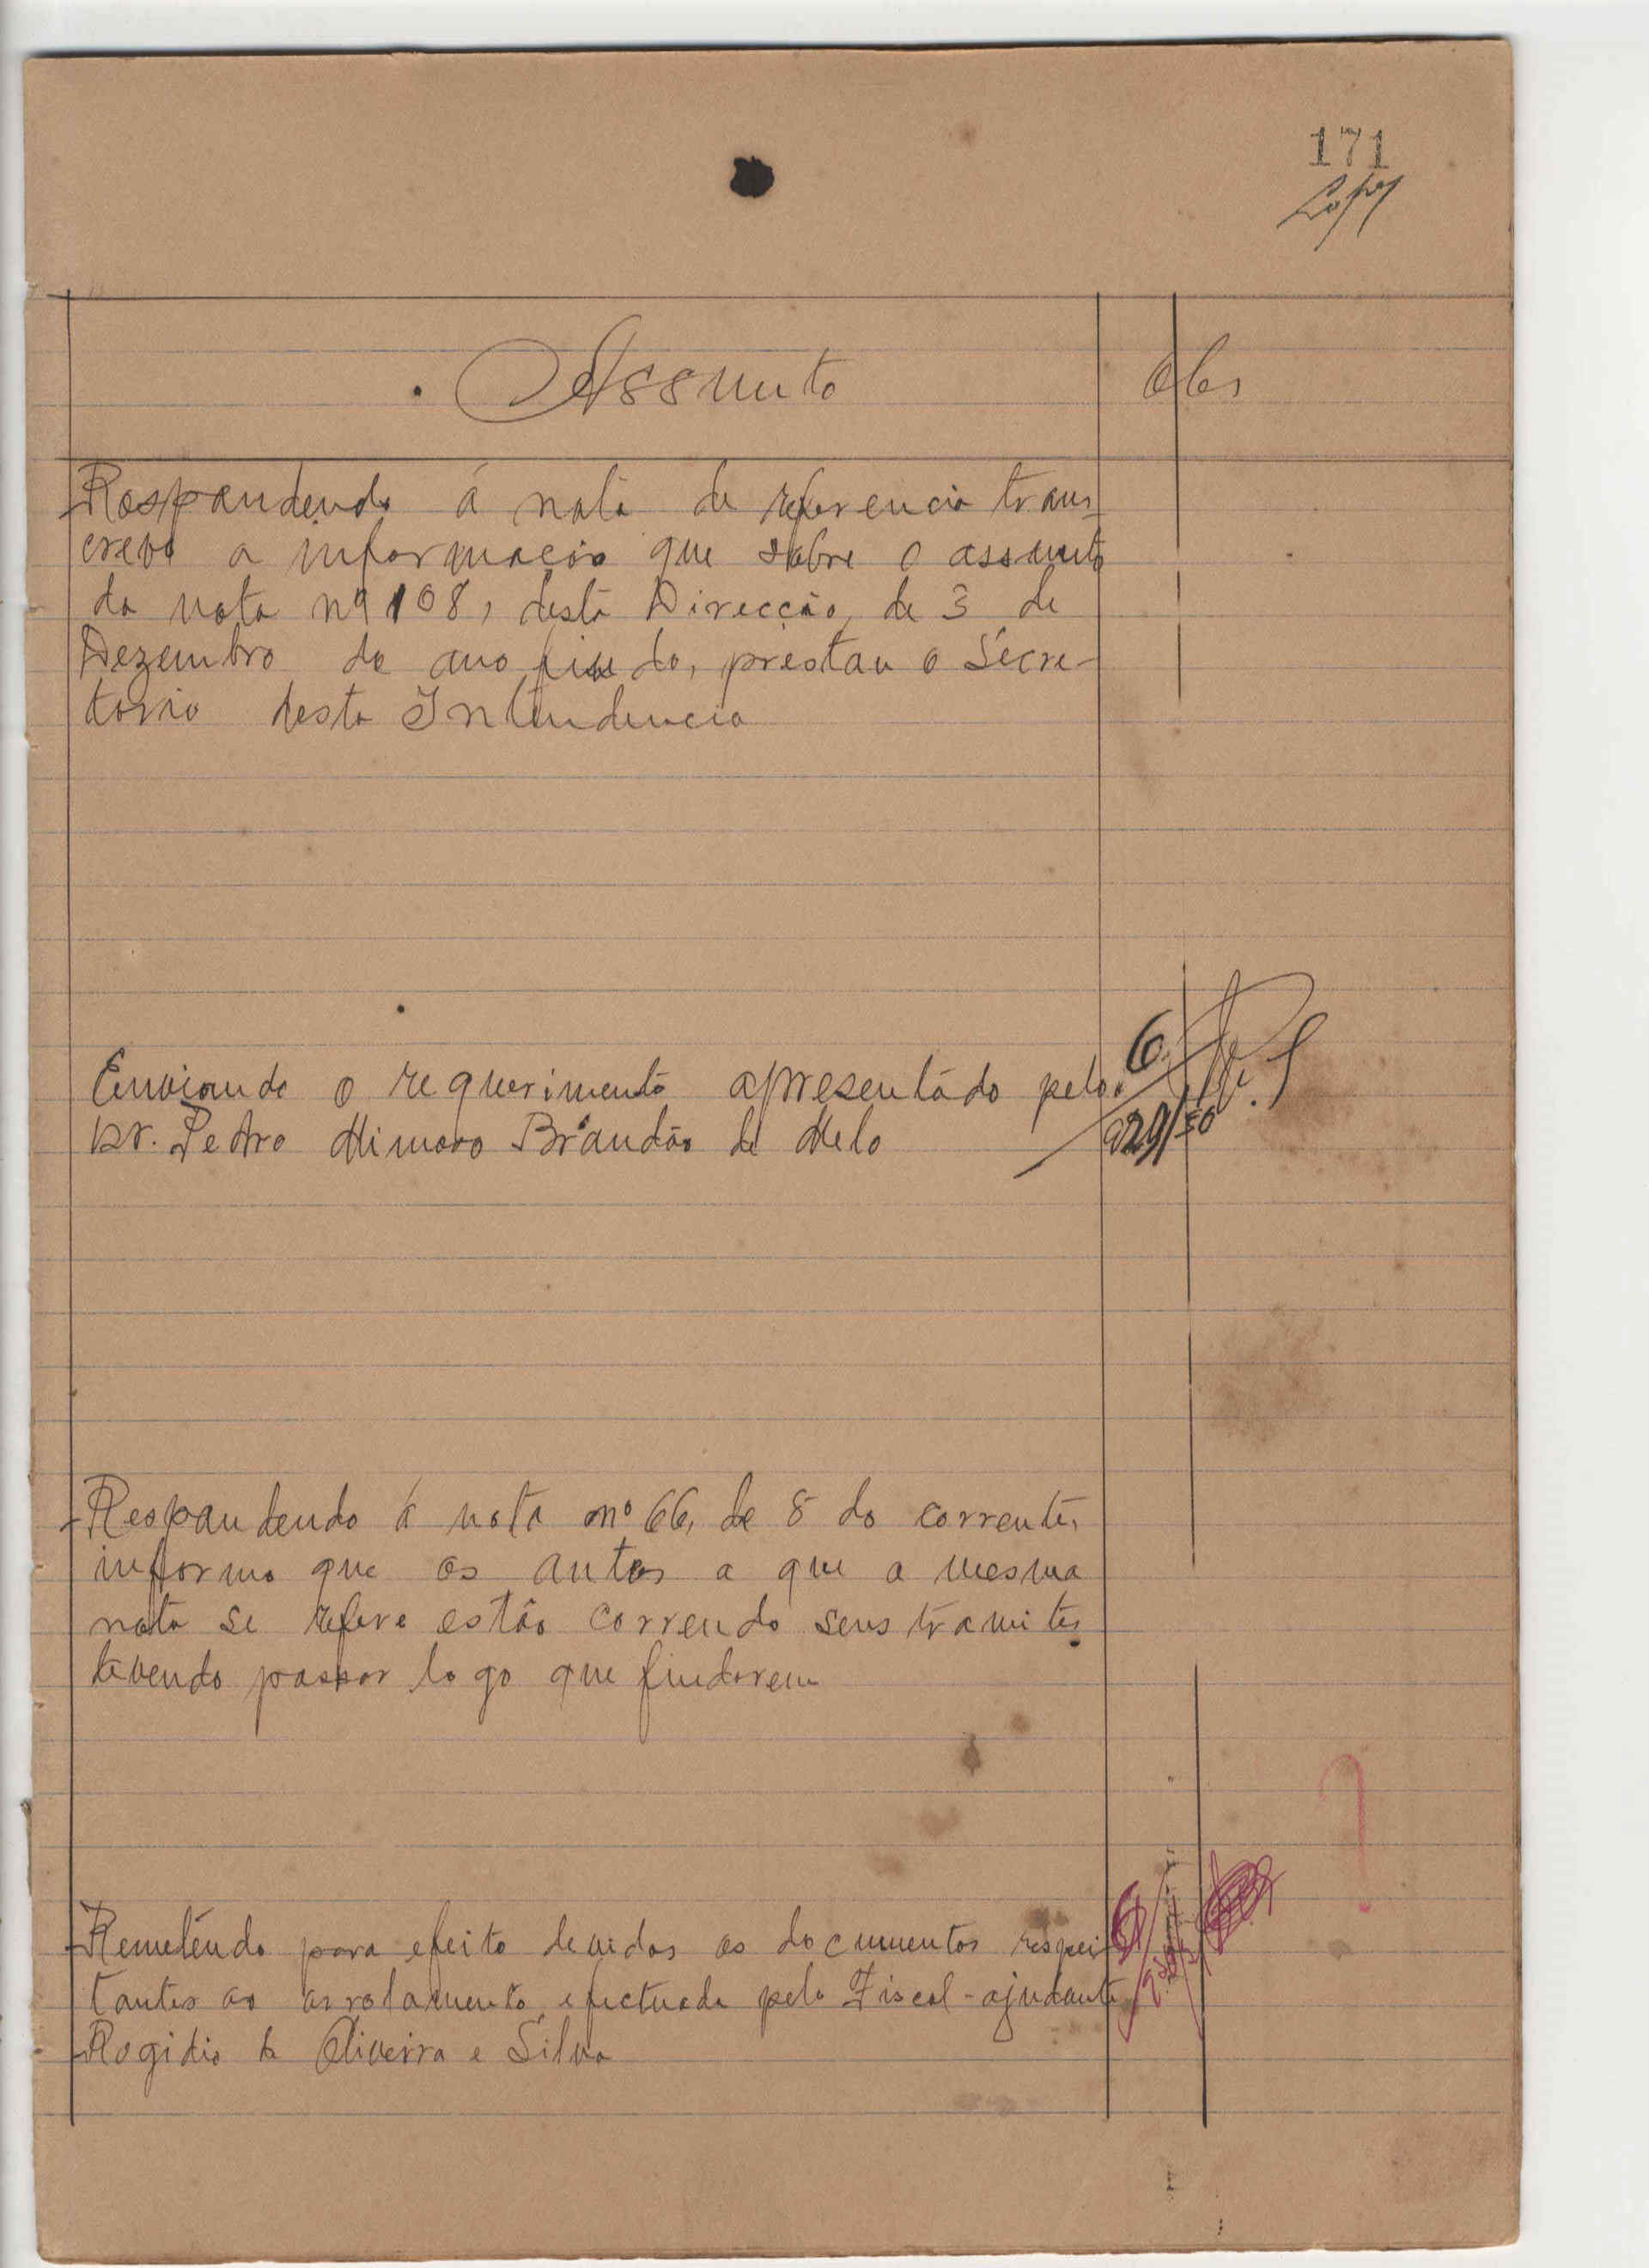 171
Lopes
Assunto
Obs
Respondendo á nota de referencia trans-
crevo a informação que sobre o assunto
da nota nº 108, desta Direcção, de 3 de
Dezembro do ano findo, prestou o Secre-
tario desta Intendencia
Enviando o requerimento apresentado pelo
Dr. Pedro Mimoso Brandão de Melo
6
929/30
Respondendo á nota nº 66, de 8 do corrente,
informo que os autos a que a mesma
nota se refere estão correndo seus tramites
devendo passar logo que findarem
?
Remetendo para efeito devidos os documentos respei-
tantes ao arrolamento efectuado pelo Fiscal-ajudante
Rogidio de Oliveira e Silva
6